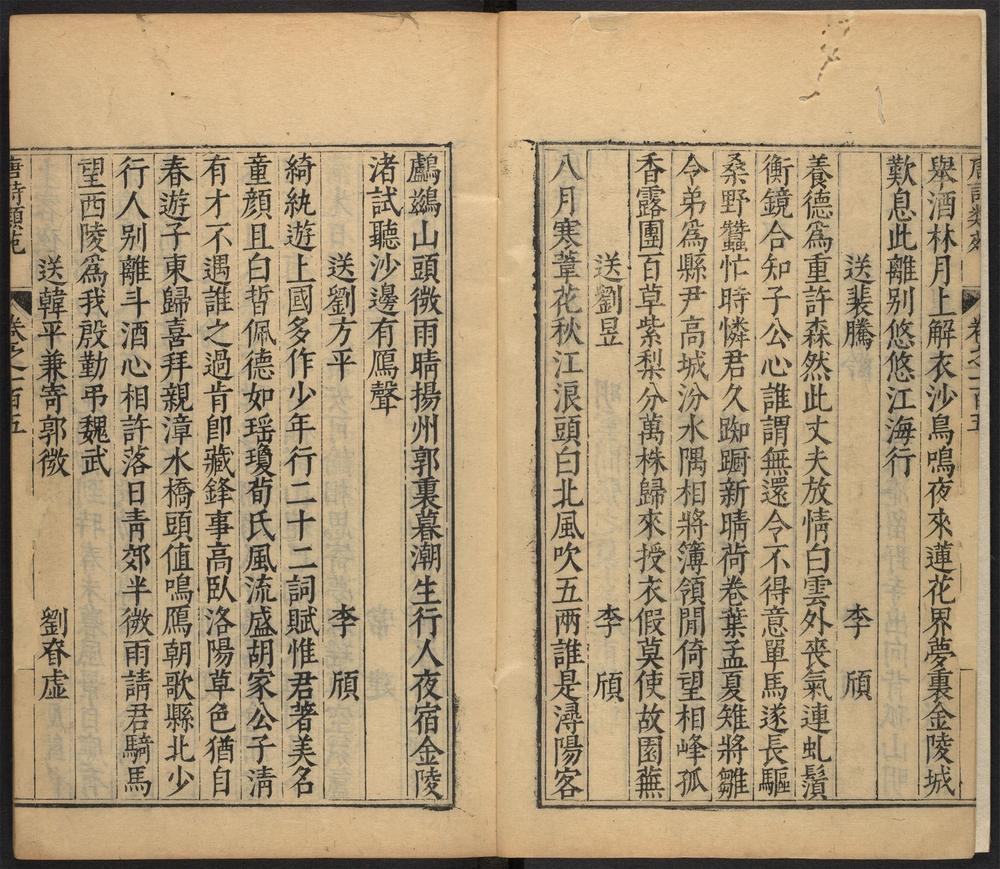 唐詩類苑 卷之一百五
舉酒林月上解衣沙鳥鳴夜來蓮花界夢裏金陵城
歎息此離別悠悠江海行
送裴騰 李頎
養德爲重許森然此丈夫放情白雲外喪氣連虬鬚
衡鏡合知子公心誰謂無還令不得意單馬遂長驅
桑野蠶忙時憐君久踟躕新晴荷卷葉孟夏雉將雛
令弟爲縣尹高城汾水隅相將簿領閒倚望相峰孤
香露團百草紫梨分萬株歸來授衣假莫使故園蕪
送劉昱 李頎
八月寒葦花秋江浪頭白北風吹五兩誰是潯陽客
鸕鷀山頭微雨晴揚州郭裏暮潮生行人夜宿金陵
渚試聽沙邊有鴈聲
送劉方平 李頎
綺紈遊上國多作少年行二十二詞賦惟君著美名
童顏且白晢佩德如瑶瓊荀氏風流盛胡家公子淸
有才不遇誰之過肯卽藏鋒事高臥洛陽草色猶自
春遊子東歸喜拜親漳水橋頭值鳴鴈朝歌縣北少
行人别離斗酒心相許落日靑郊半微雨請君騎馬
望西陵爲我殷勤弔魏武
送韓平兼寄郭微 劉眘虛
唐詩類苑 卷之一百五